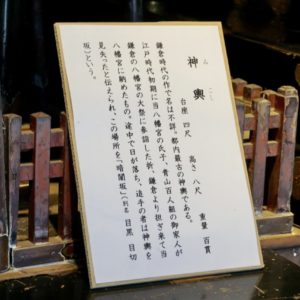 神輿
みこし
台座 四尺 高さ 八尺 重量 百貫
鎌倉時代の作で名は不詳。都内最古の神輿である。
江戸時代初期に当八幡宮の氏子、青山百人組の御家人が
鎌倉の八幡宮の大祭に参詣した折、鎌倉より担ぎ来て当
八幡宮に納めたもの。途中で日が落ち、追手の者は神輿を
見失ったと伝えられ、この場所を「暗闇坂」(別名 目黒 目切
坂)という。